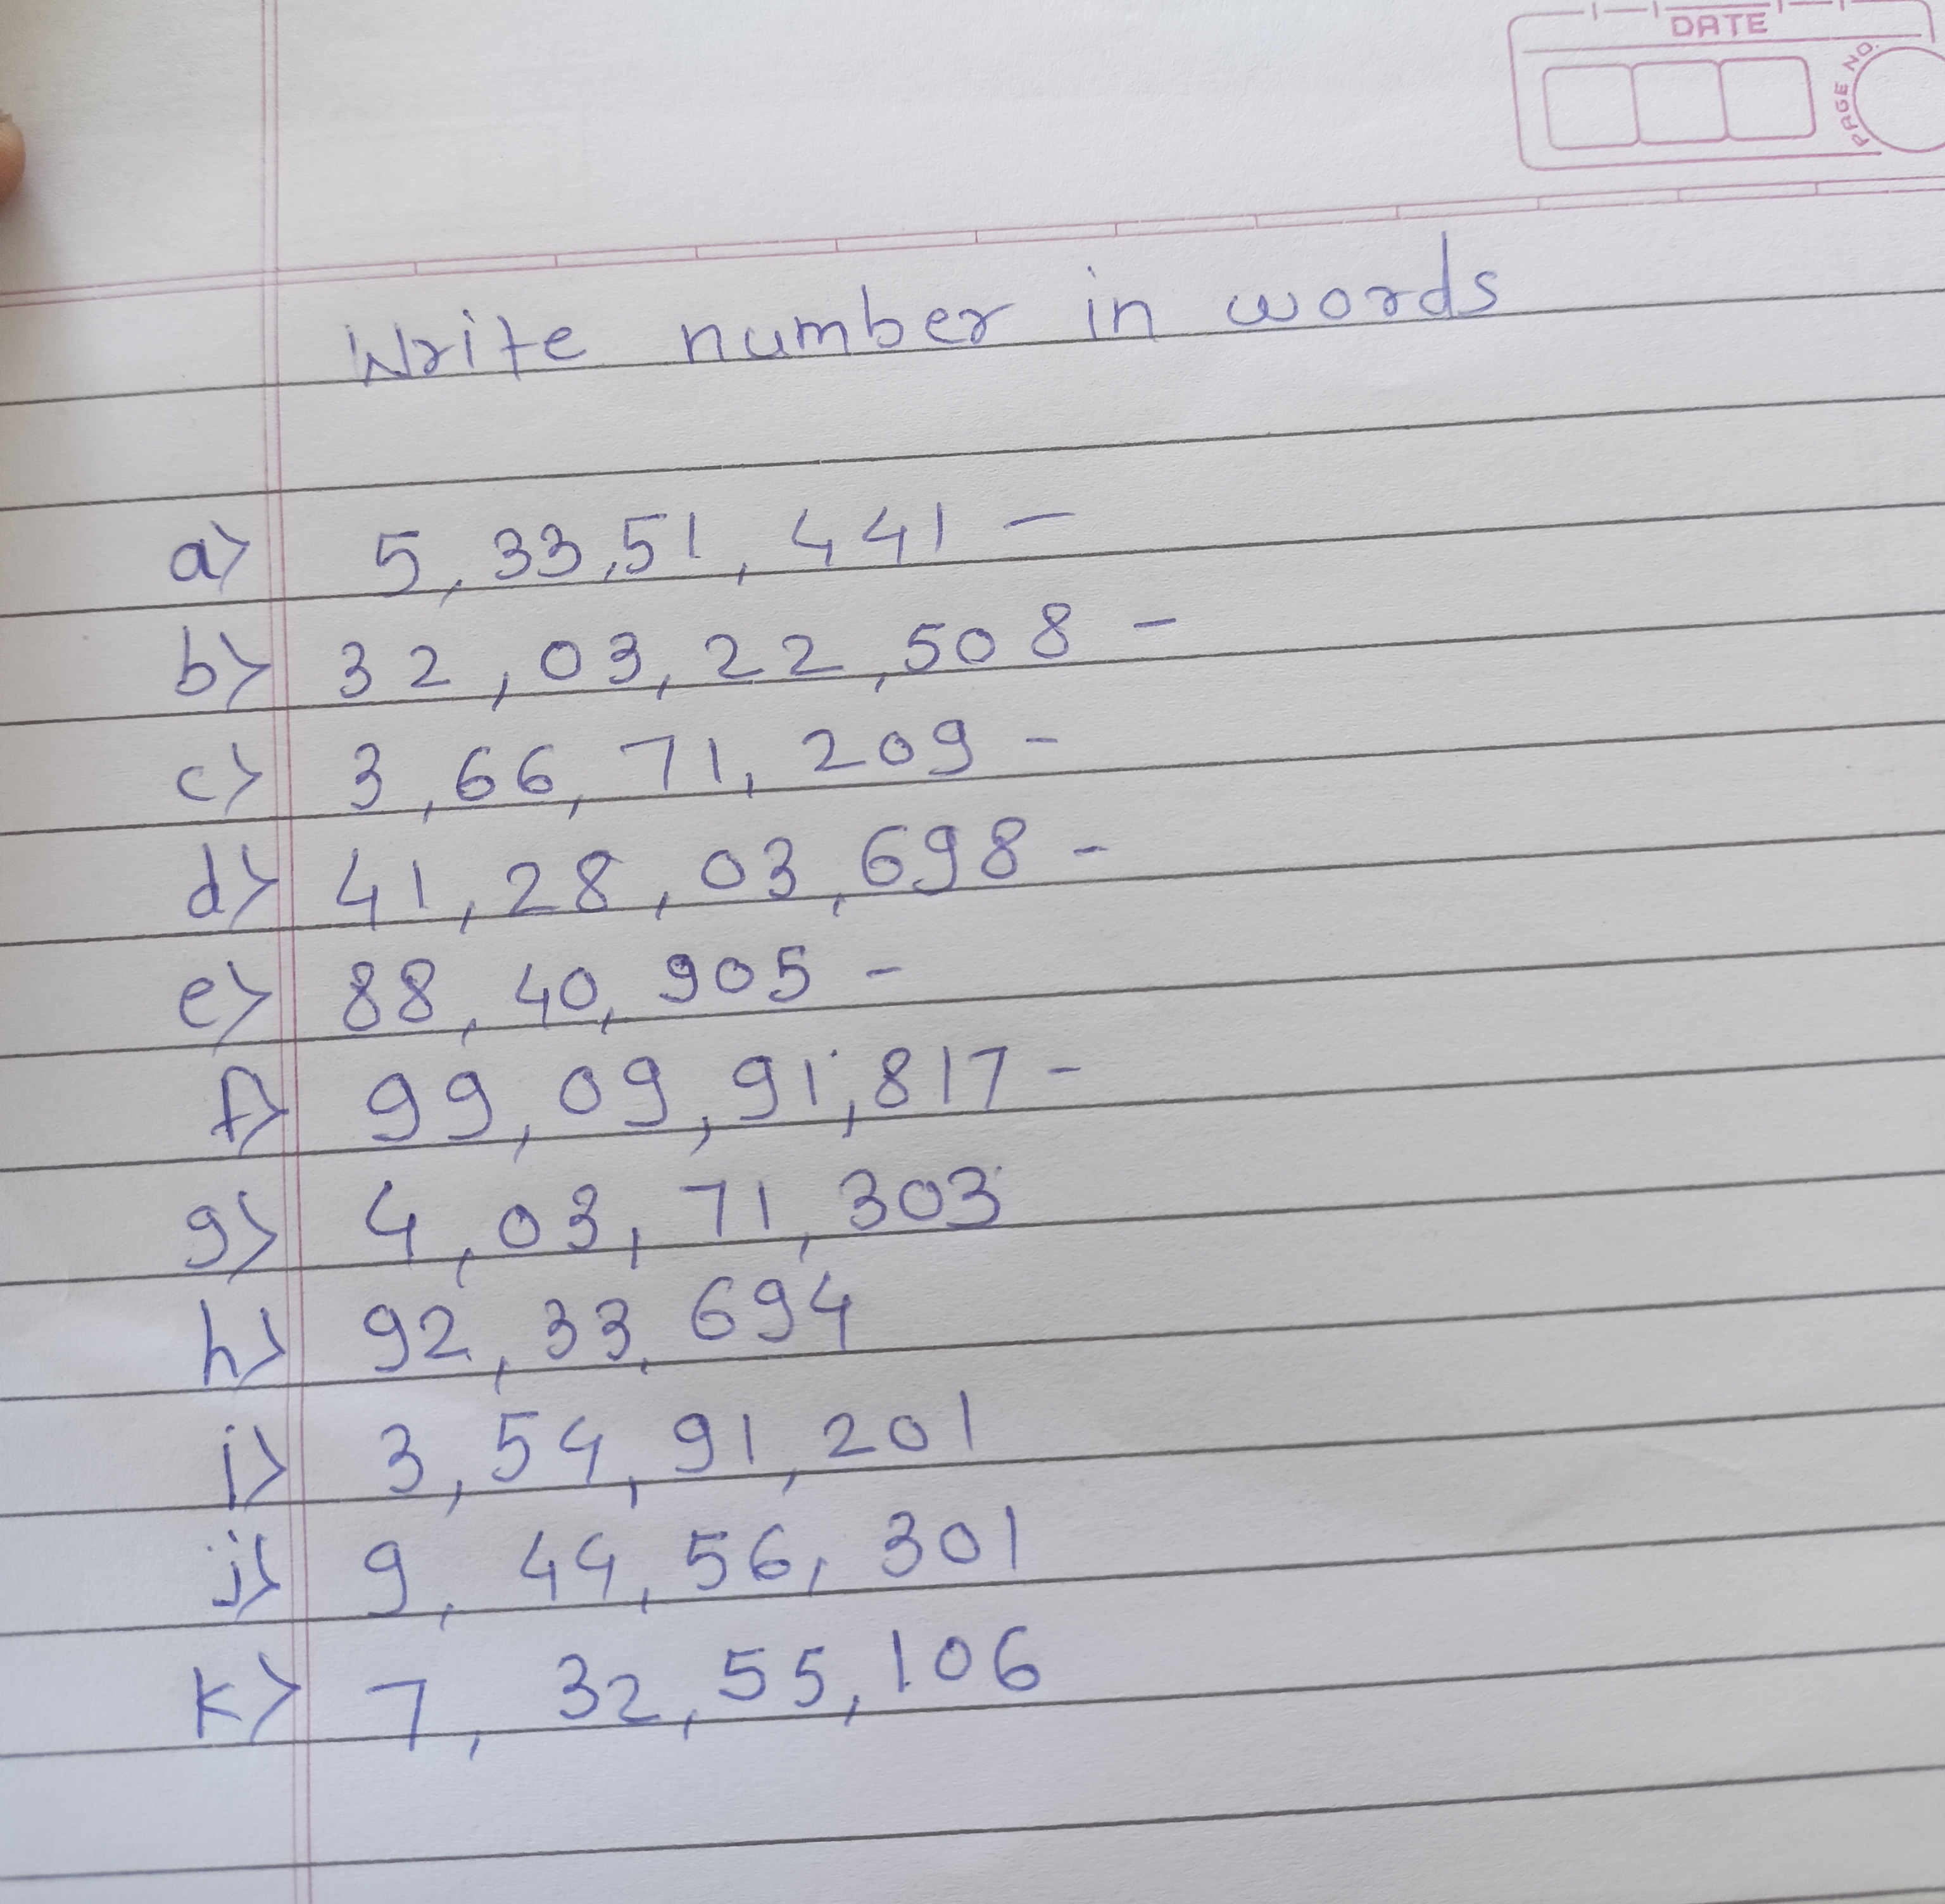 DATE
PAGE NO.
Write number in words
a) 5,33,51,441 -
b) 32,03,22,508 -
c) 3,66,71,209 -
d) 41,28,03,698 -
e) 88,40,905 -
f) 99,09,91,817 -
g) 4,03,71,303
h) 92,33,694
i) 3,54,91,201
j) 9,44,56,301
k) 7,32,55,106